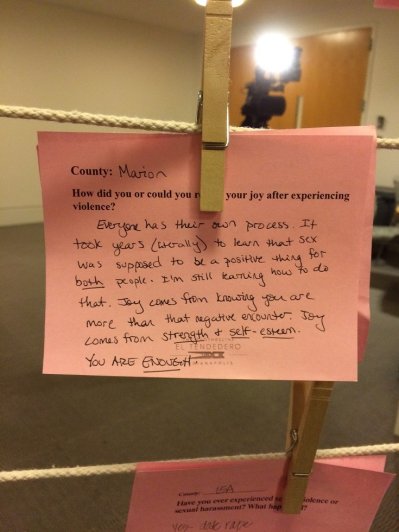 County: Marion
How did you or could you your joy after experiencing
violence?
Everyone has their own process. It
took years (literally) to learn that sex
was supposed to be a positive thing for
both people. I'm still learning how to do
that. Joy comes from knowing you are
more than that negative encounter. Joy
comes from strength & self-esteem.
EL TENDEDERO
YOU ARE ENOUGH
County: USA
Have you ever experienced violence or
sexual harassment? What
yes - date rape